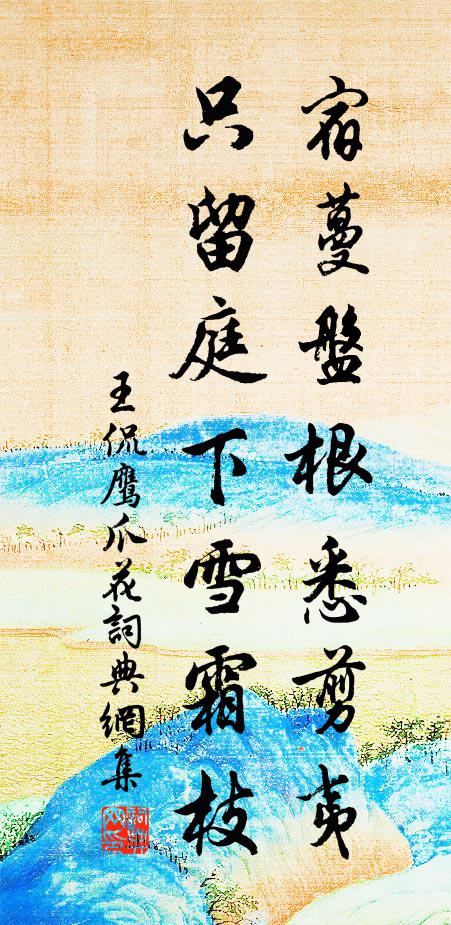 宿蔓盤根悉剪夷
只留庭下雪霜枝
王侃鹰爪花詞典網集